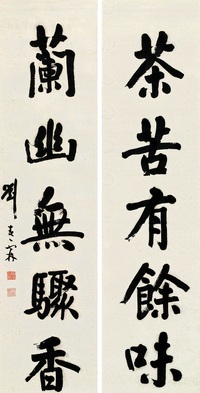 茶苦有餘味
蘭幽無驟香
劉春霖